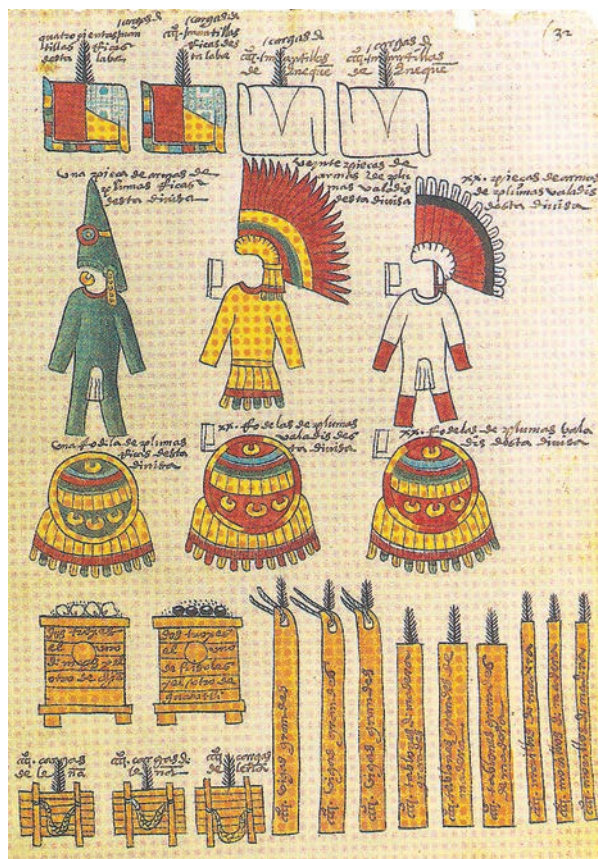 32
quatro cientas man
tillas ricas
desta labor
cargas de
mantillas
ricas des
ta labor
cargas de
mantillas
de eneque
cargas de
mantillas
de eneque
Una pieca de armas de
plumas ricas
desta divisa
Veynte piecas de
armas de plu
mas valadis
desta divisa
xx. piecas de armas
de plumas valadis
desta divisa
Una rodela de plumas
ricas desta
divisa
xx. rodelas de plumas
valadis des
ta divisa
xx. rodelas de plumas vala
dis desta divisa
dos trojes
el uno
de mayz y el
otro de chia
dos trojes
el uno
de frisoles
y el otro de
guautli
cargas
de leña
cargas
de leña
cargas
de leña
vigas grandes
vigas grandes
vigas grandes
tablones grandes
de madera
tablones grandes
de madera
tablones grandes
de madera
morillos de madera
morillos de madera
morillos de madera